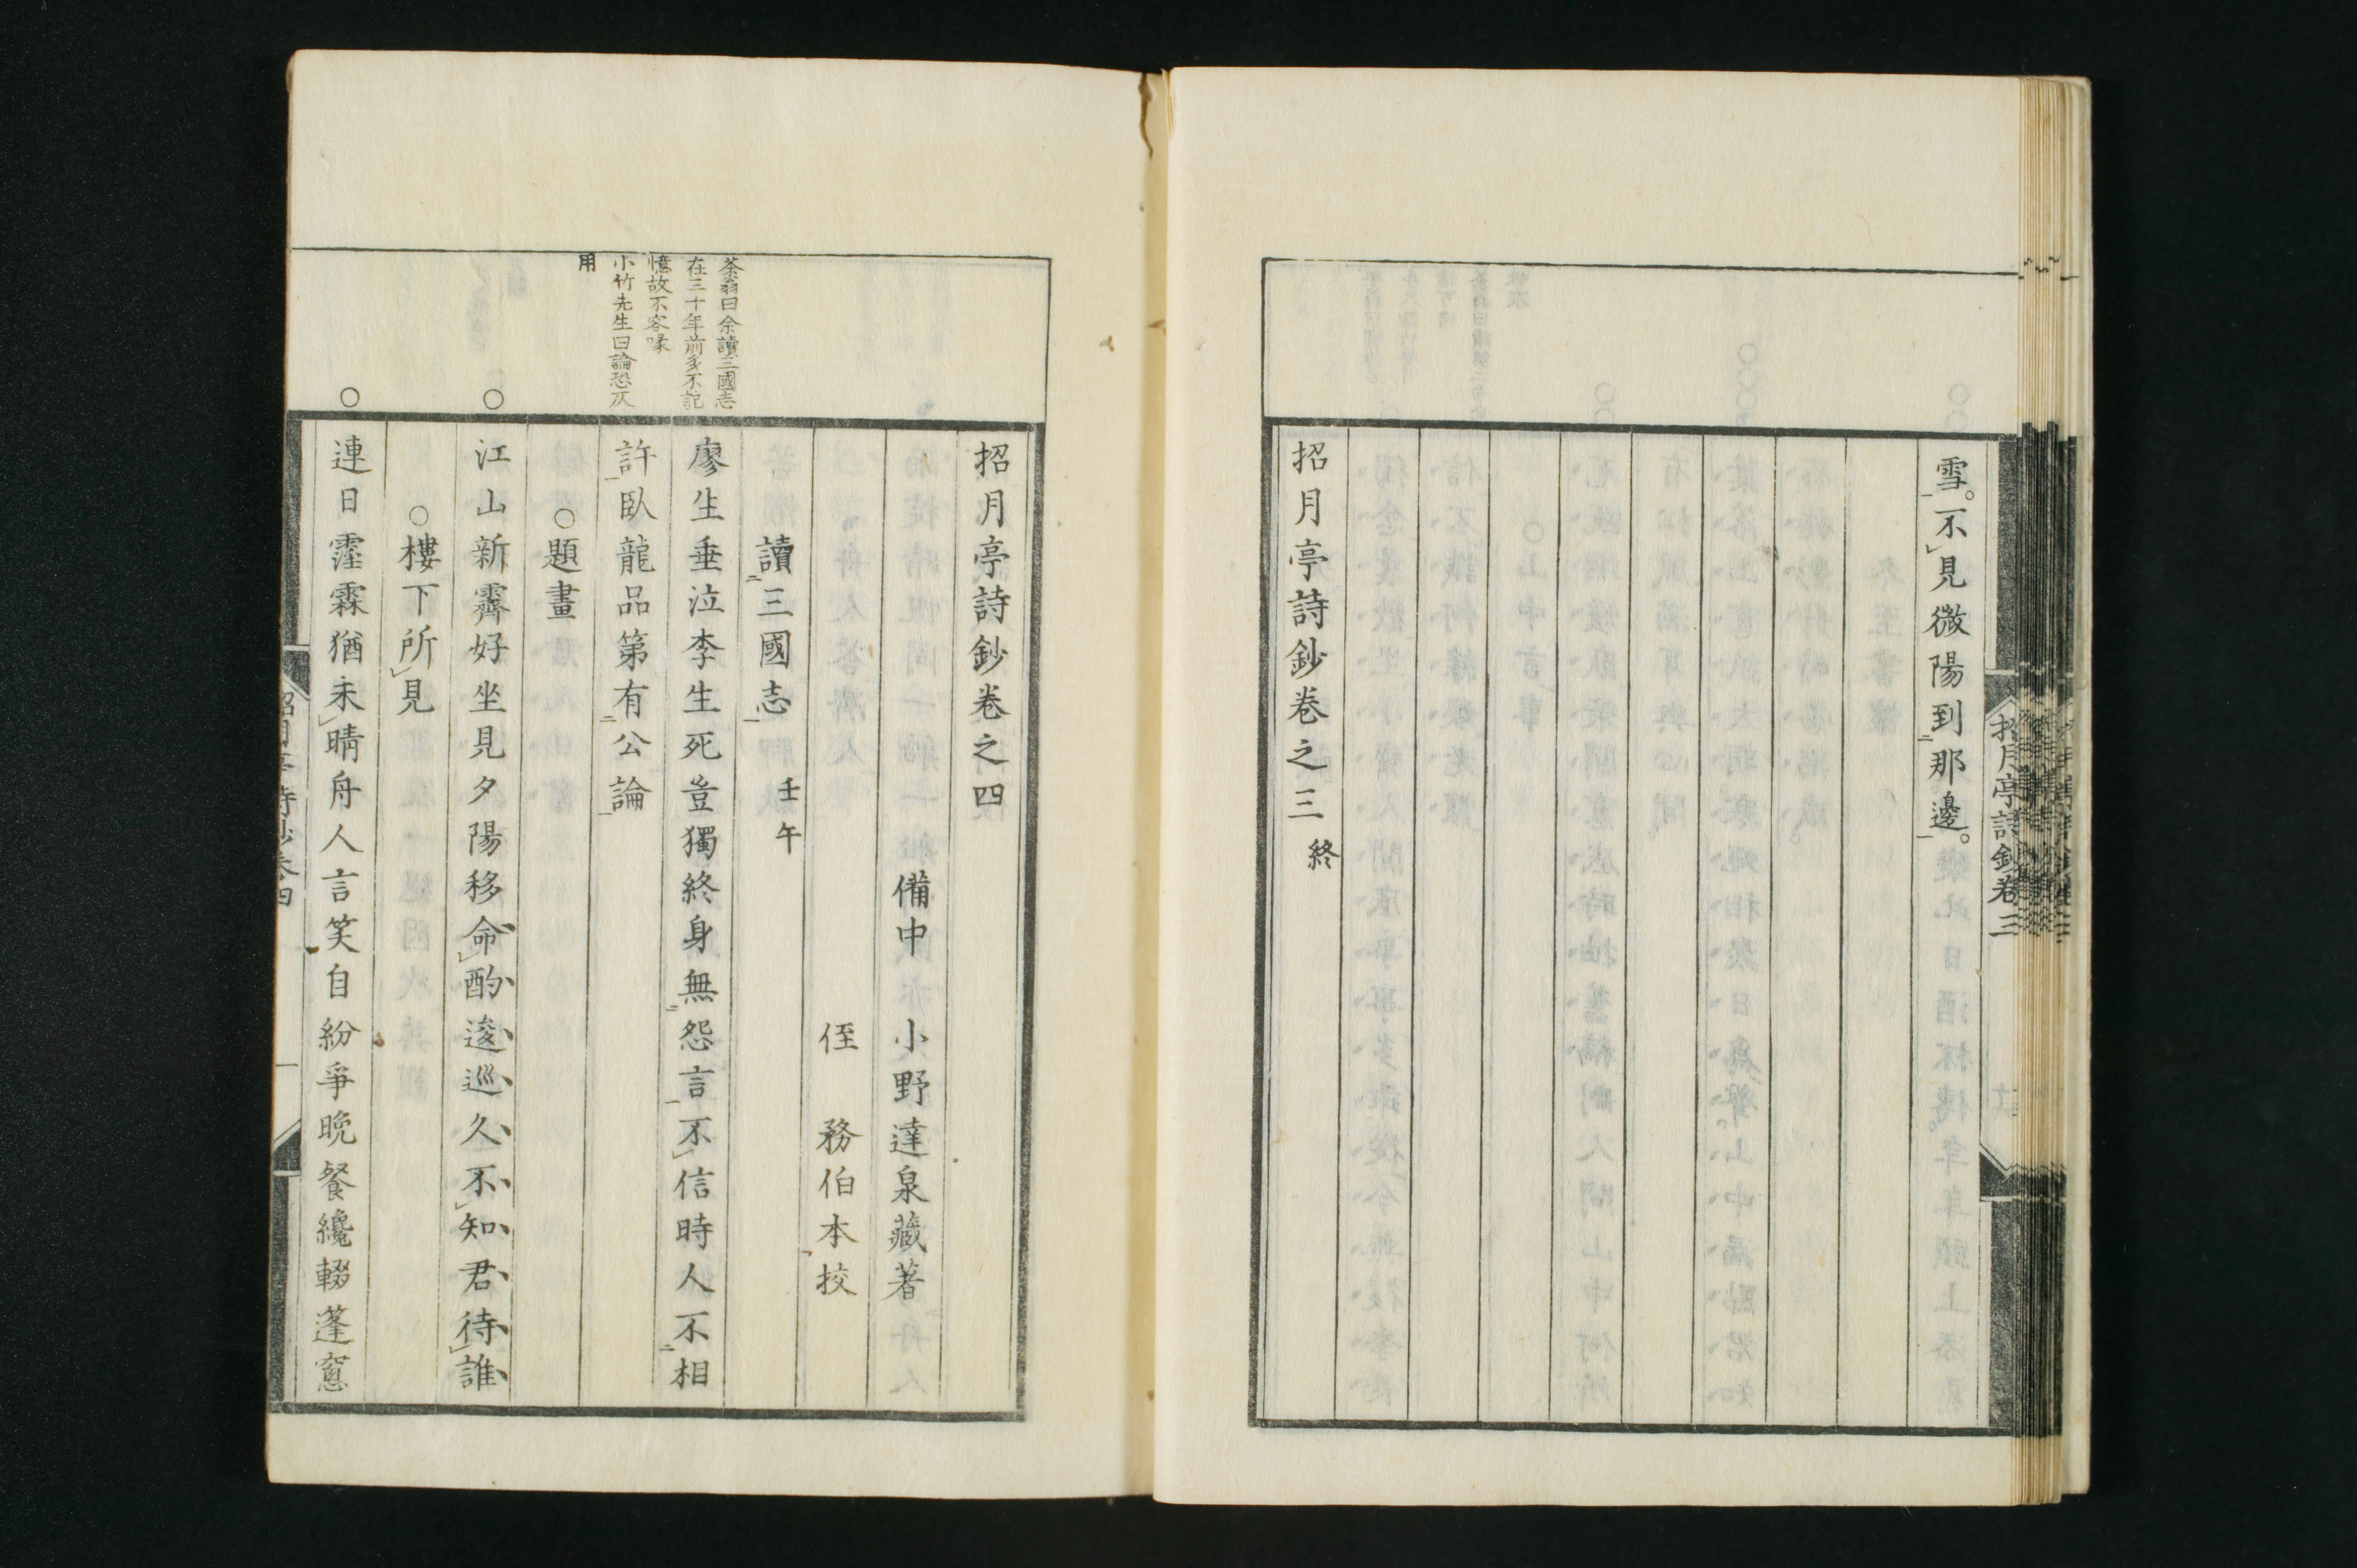 雪不見微陽到那邊
招月亭詩鈔卷之三 終
招月亭詩鈔卷三
招月亭詩鈔卷之四
備中 小野達泉藏著
侄 務伯本挍
讀三國志 壬午
廖生垂泣李生死豈獨終身無怨言不信時人不相
許臥龍品第有公論
○題畫
江山新霽好坐見夕陽移命酌逡巡久不知君待誰
○樓下所見
連日霪霖猶未晴舟人言笑自紛爭晩餐纔輟蓬窻
茶翁曰余讀三國志
在三十年前多不記
憶故不容喙
小竹先生曰論恐仄
用
○
○
招月亭詩鈔卷四
一